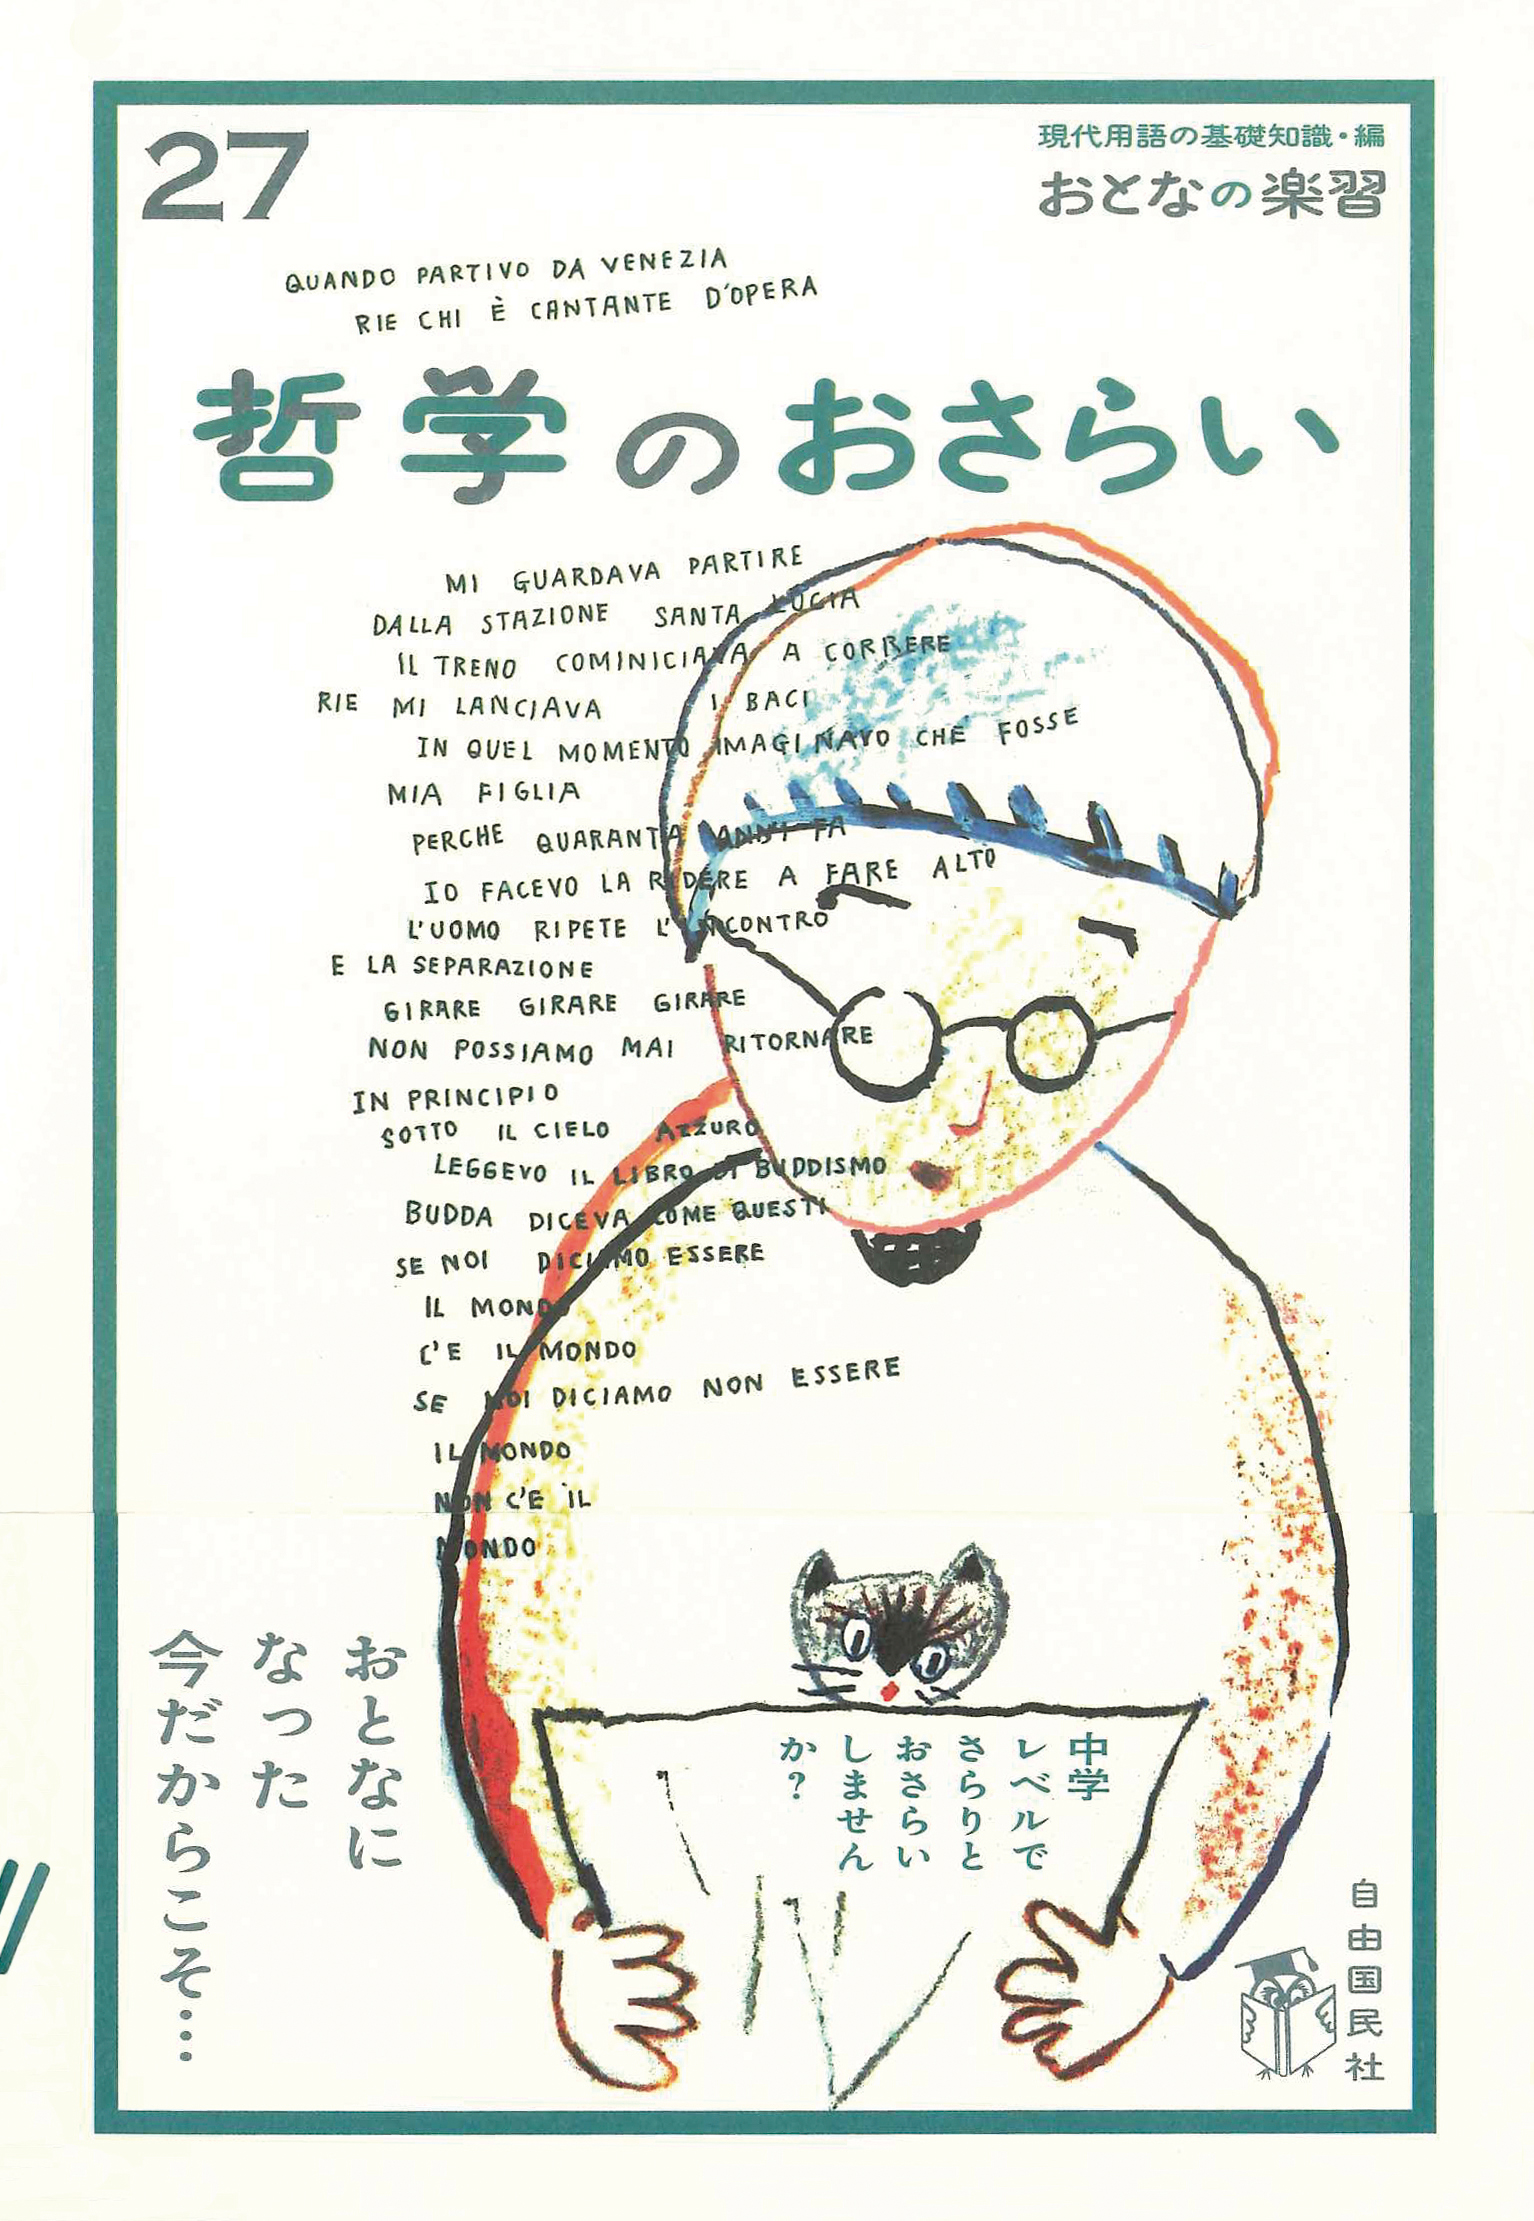 27
現代用語の基礎知識・編
おとなの楽習
QUANDO PARTIVO DA VENEZIA
RIE CHI È CANTANTE D'OPERA
哲学のおさらい
MI GUARDAVA PARTIRE
DALLA STAZIONE SANTA LUCIA
IL TRENO COMINICIAVA A CORRERE
RIE MI LANCIAVA I BACI
IN QUEL MOMENTO IMAGINAVO CHE FOSSE
MIA FIGLIA
PERCHE QUARANTA ANNI FA
IO FACEVO LA RIDERE A FARE ALTO
L'UOMO RIPETE L'INCONTRO
E LA SEPARAZIONE
GIRARE GIRARE GIRARE
NON POSSIAMO MAI RITORNARE
IN PRINCIPIO
SOTTO IL CIELO AZZURO
LEGGEVO IL LIBRO DI BUDDISMO
BUDDA DICEVA COME QUESTI
SE NOI DICIAMO ESSERE
IL MONDO
C'E IL MONDO
SE NOI DICIAMO NON ESSERE
IL MONDO
NON C'E IL
MONDO
おとなに
なった
今だからこそ…
中学
レベルで
さらりと
おさらい
しません
か?
自由国民社